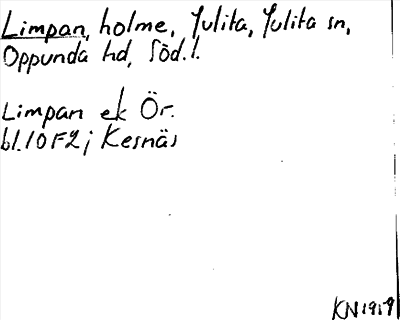 Limpan, holme, Julita, Julita sn,
Oppunda hd, Söd. l.
Limpan ek Ör.
bl. 10F2j Kesnäs
KN 1919